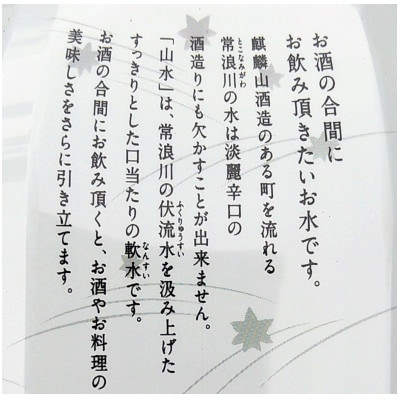 お酒の合間に
お飲み頂きたいお水です。
麒麟山酒造のある町を流れる
常浪川の水は淡麗辛口の
とこなみがわ
酒造りにも欠かすことが出来ません。
「山水」は、常浪川の伏流水を汲み上げた
ふくりゅうすい
すっきりとした口当たりの軟水です。
なんすい
お酒の合間にお飲み頂くと、お酒やお料理の
美味しさをさらに引き立てます。